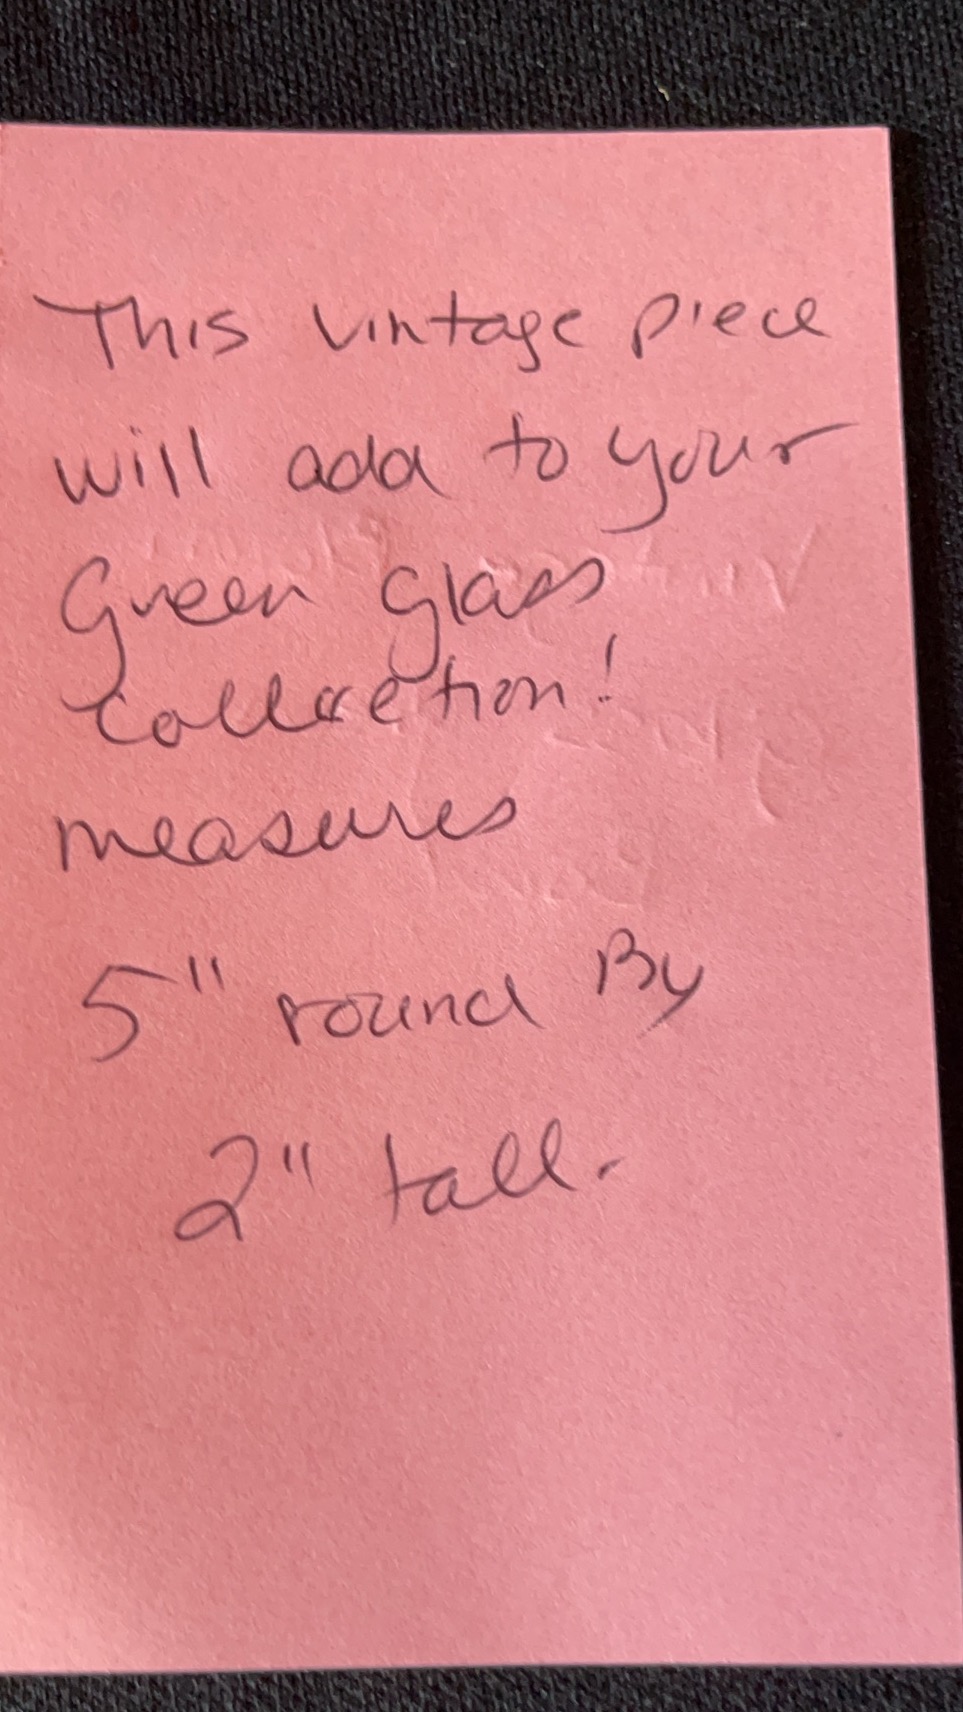 This vintage piece
will add to your
Green Glass
Collection!
measures
5" round By
2" tall.